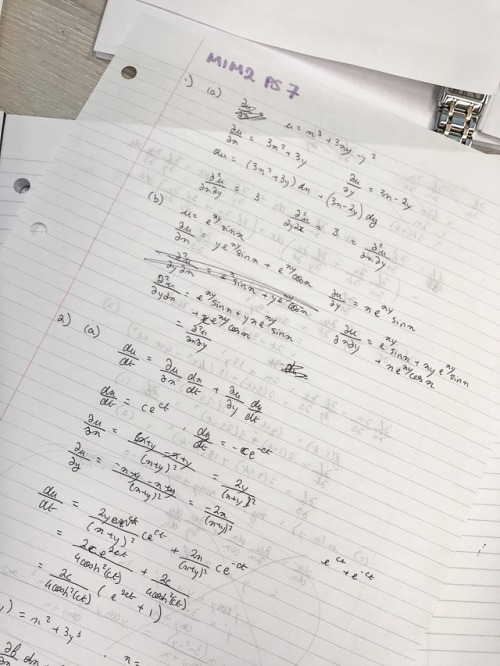 M1M2 PS 7
1) (a) u = x³ + 3xy - y²
∂u/∂x = 3x² + 3y ∂u/∂y = 3x - 2y
du = (3x² + 3y) dx + (3x - 2y) dy
∂²u/∂x∂y = 3 ∂²u/∂y∂x = 3 = ∂²u/∂x∂y
(b) u = e^xy sinx
∂u/∂x = ye^xy sinx + e^xy cosx ∂u/∂y = xe^xy sinx
∂²u/∂y∂x = e^xy sinx + yxe^xy sinx + xe^xy cosx ∂²u/∂x∂y = e^xy sinx + xye^xy sinx + xe^xy cosx
= ∂²u/∂x∂y
2) (a) du/dt = ∂u/∂x dx/dt + ∂u/∂y dy/dt
dx/dt = ce^ct , dy/dt = -ce^-ct
∂u/∂x = x+y -x+y/(x+y)² = 2y/(x+y)²
∂u/∂y = -x-y -x+y/(x+y)² = -2x/(x+y)²
du/dt = 2y/(x+y)² ce^ct + 2x/(x+y)² ce^-ct
e^ct + e^-ct
= /4cosh²(ct) + 2c/4cosh²(ct)
= 2c/4cosh²(ct) (e^2ct + 1)
) = x² + 3y³